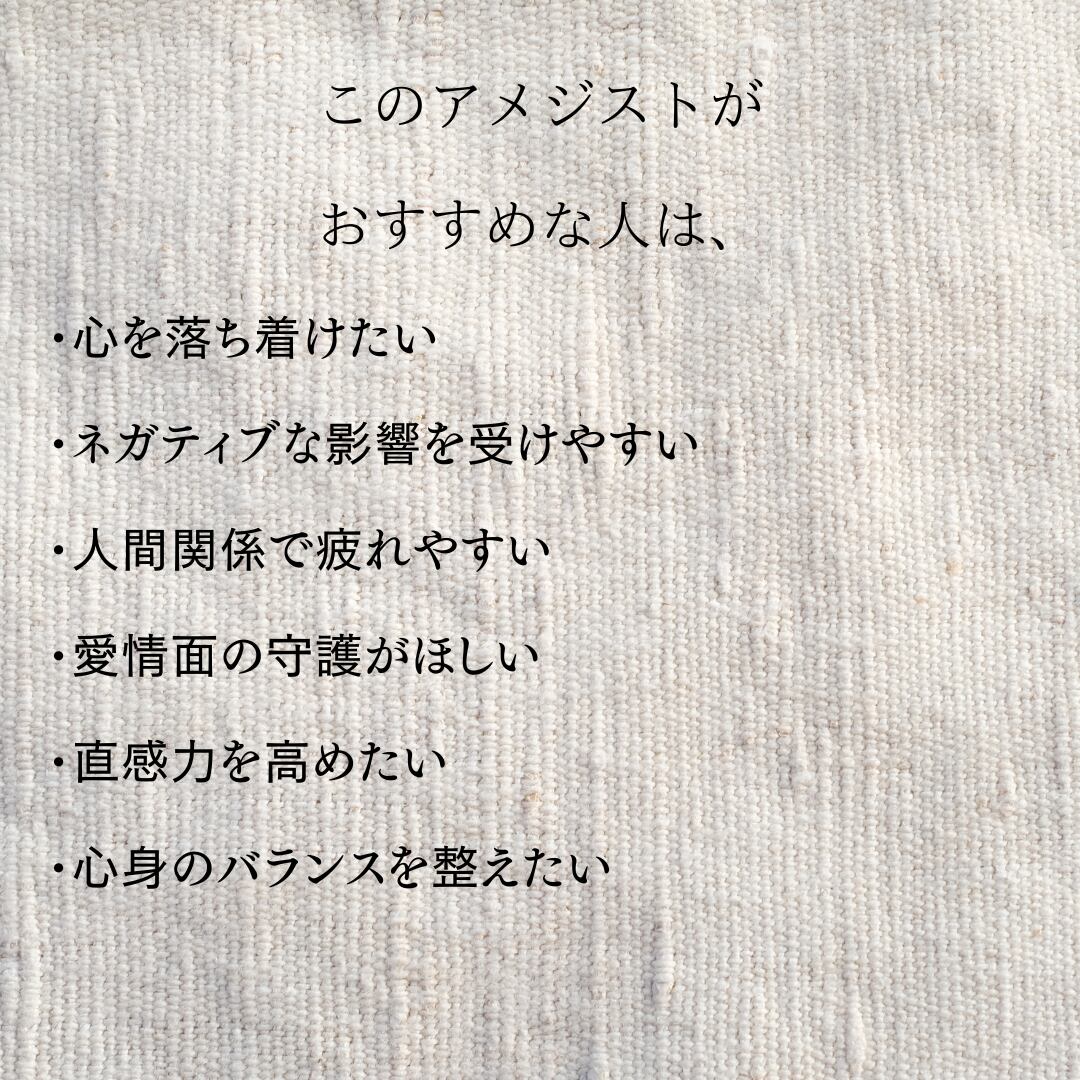 このアメジストが
おすすめな人は、
・心を落ち着けたい
・ネガティブな影響を受けやすい
・人間関係で疲れやすい
・愛情面の守護がほしい
・直感力を高めたい
・心身のバランスを整えたい